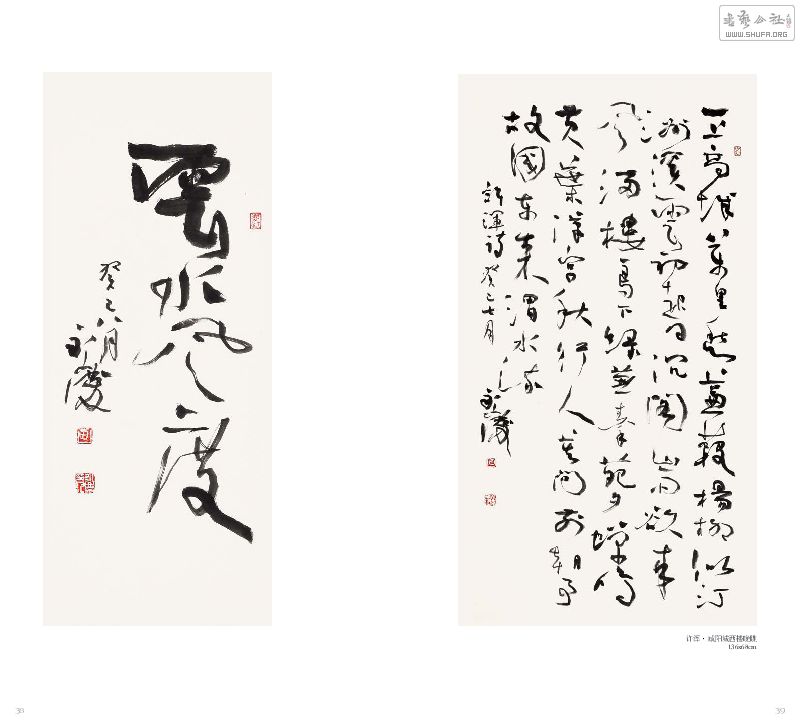 書藝公社
WWW.SHUFA.ORG
雲水風度
癸巳八月
一上高城萬里愁蒹葭楊柳似汀
洲溪雲初起日沉閣山雨欲來
風滿樓鳥下綠蕪秦苑夕蟬鳴
黃葉漢宮秋行人莫問前朝事
故國東來渭水流
許渾詩癸巳七月
许浑·咸阳城西楼晚眺
136x68cm
38
39